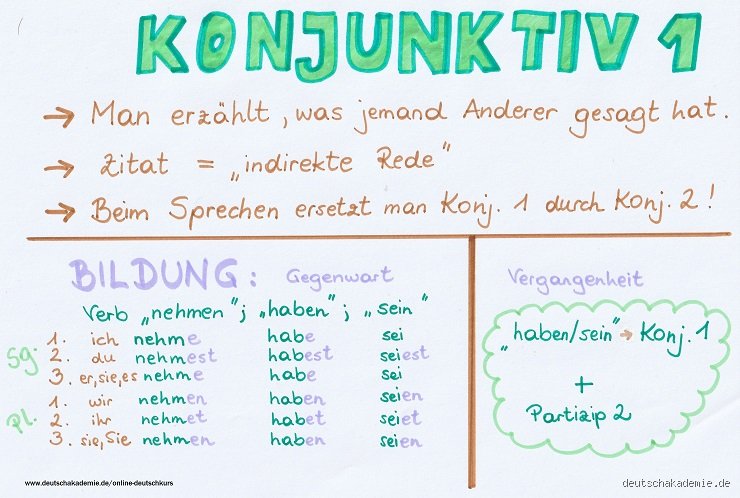 KONJUNKTIV 1
→ Man erzählt, was jemand Anderer gesagt hat.
→ Zitat = „indirekte Rede"
→ Beim Sprechen ersetzt man Konj. 1 durch Konj. 2!
BILDUNG: Gegenwart
Verb „nehmen"; „haben"; „sein"
Sg.
1. ich nehme habe sei
2. du nehmest habest seiest
3. er, sie, es nehme habe sei
Pl.
1. wir nehmen haben seien
2. ihr nehmet habet seiet
3. sie, Sie nehmen haben seien
Vergangenheit
„haben/sein" → Konj. 1
+
Partizip 2
www.deutschakademie.de/online-deutschkurs
deutschakademie.de